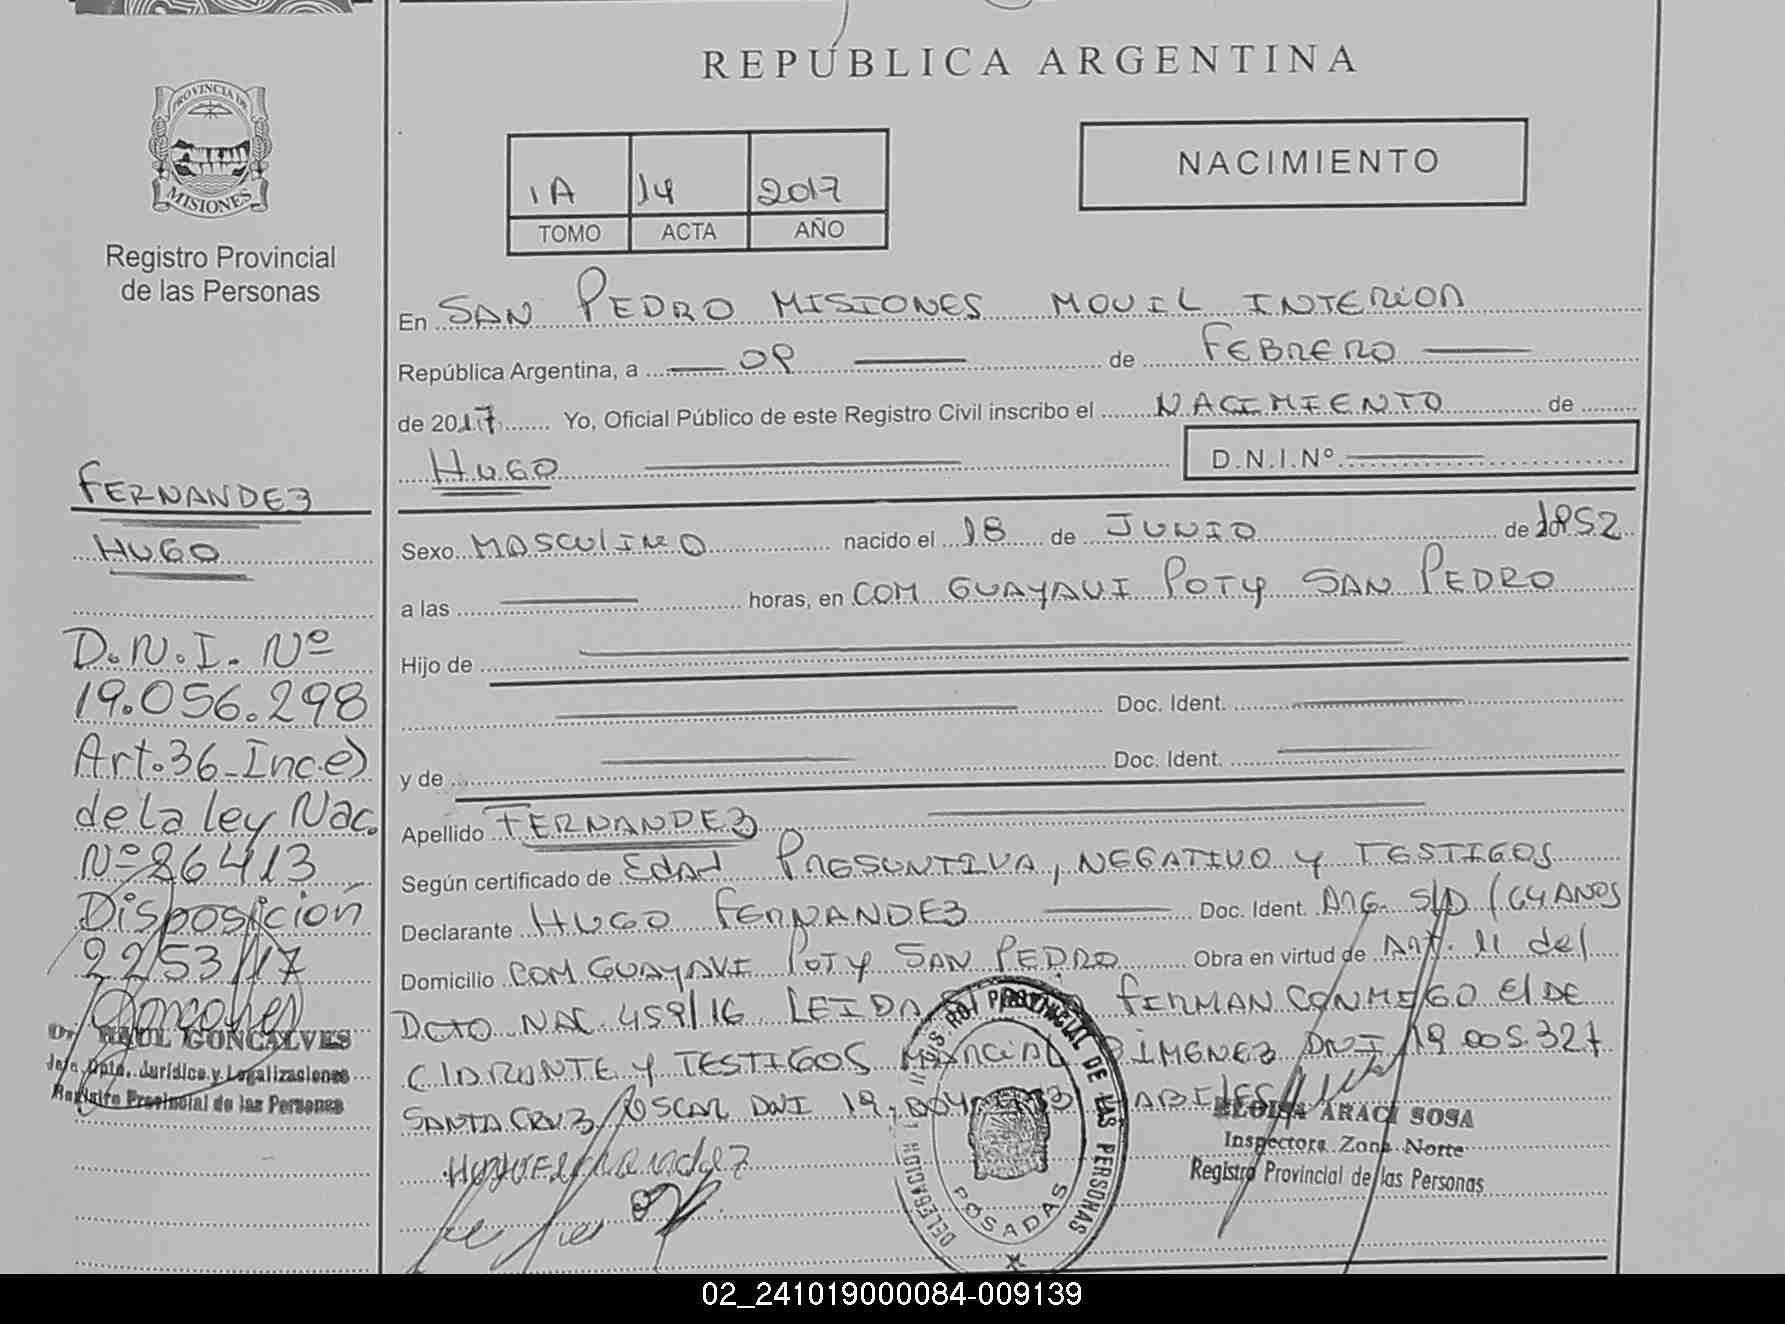 REPÚBLICA ARGENTINA
PROVINCIA DE
MISIONES
Registro Provincial
de las Personas
1A 14 2017
TOMO ACTA AÑO
NACIMIENTO
En SAN PEDRO MISIONES MOVIL INTERIOR
República Argentina, a 09 de FEBRERO
de 2017 Yo, Oficial Público de este Registro Civil inscribo el NACIMIENTO de
HUGO D.N.I.Nº
Sexo MASCULINO nacido el 18 de JUNIO de 1952
a las horas, en COM GUAYAVI POTY SAN PEDRO
Hijo de
Doc. Ident.
y de Doc. Ident.
Apellido FERNANDEZ
Según certificado de EDAD PRESUNTIVA, NEGATIVO y TESTIGOS
Declarante HUGO FERNANDEZ Doc. Ident. ARG. S/D (64 AÑOS
Domicilio COM GUAYAVI POTY SAN PEDRO Obra en virtud de Art. 11 del
DCTO NAC 459/16 LEIDA FIRMAN CONMIGO El DE
CLARANTE y TESTIGOS MARCIAL GIMENEZ DNI 19.005.327
SANTA CRUZ OSCAR DNI 19.
FERNANDEZ
HUGO
D.N.I. Nº
19.056.298
Art.36-Inc.e)
de La ley Nac.
Nº 26413
Disposición
2253/17
Goncalves
Dr. RAUL GONCALVES
Jefe Dpto. Jurídico y Legalizaciones
Registro Provincial de las Personas
REGISTRO PROVINCIAL DE LAS PERSONAS
POSADAS
ELOISA ARACI SOSA
Inspectora Zona Norte
Registro Provincial de las Personas
02_241019000084-009139